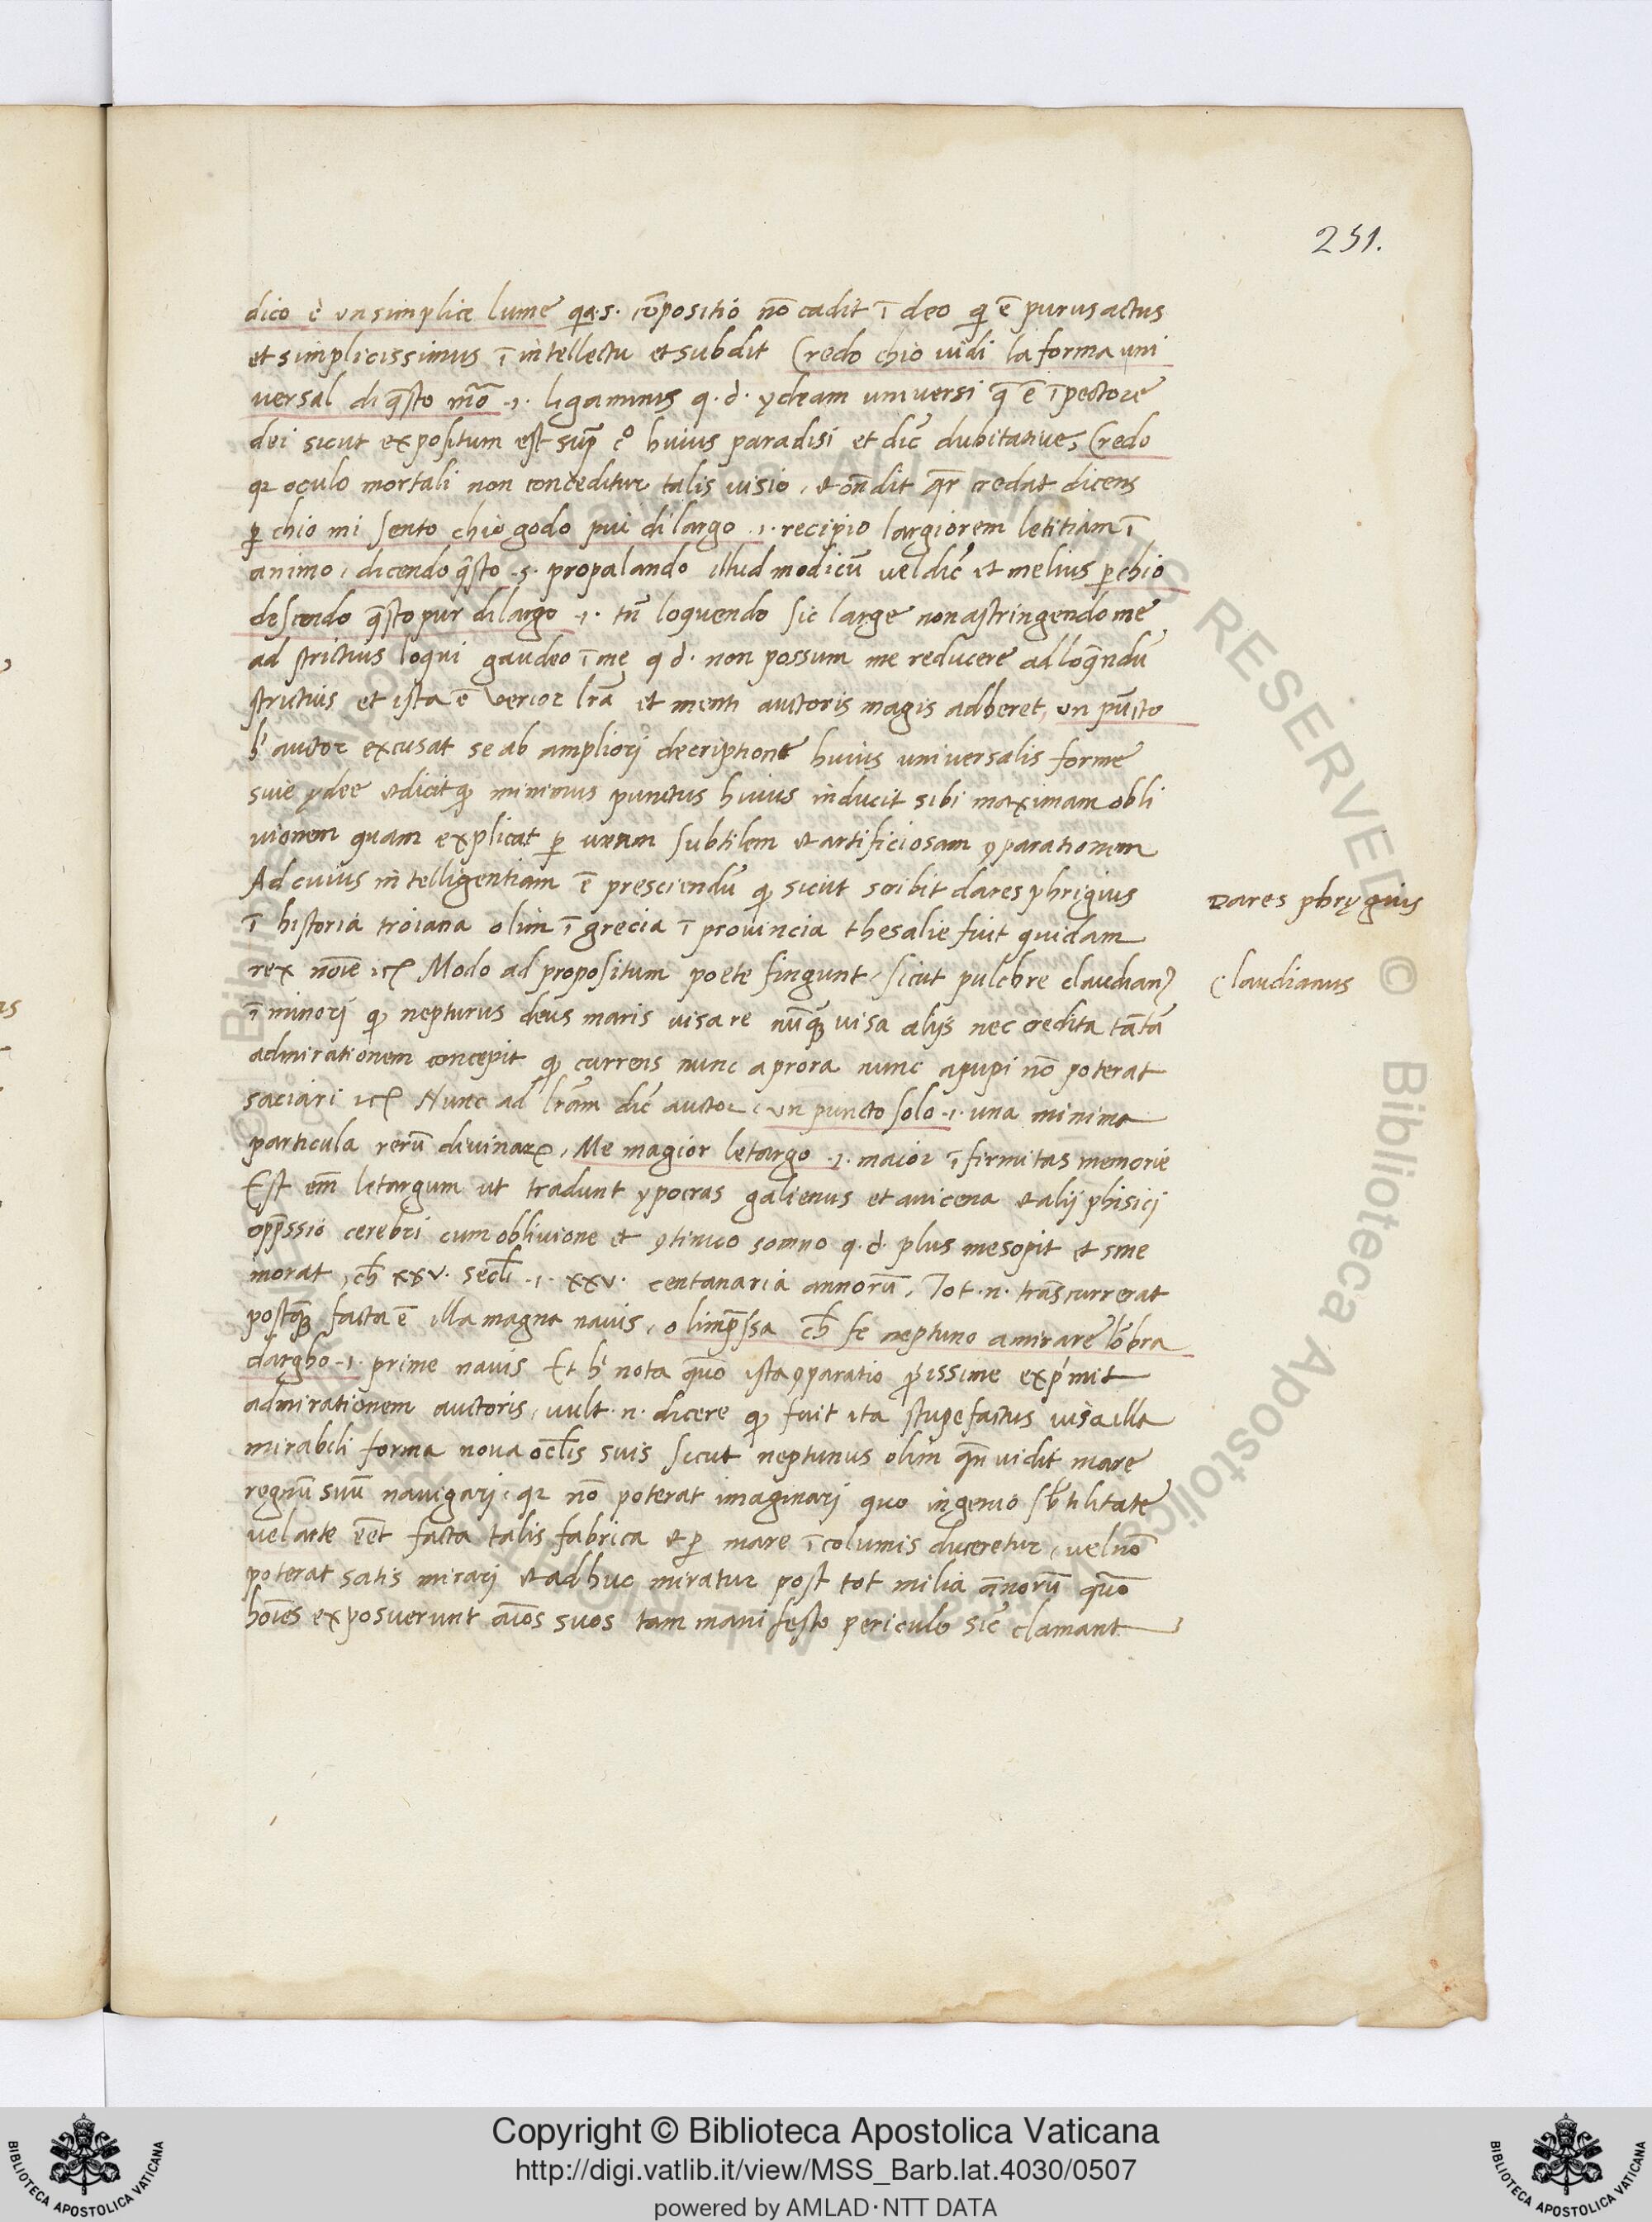 251.
dico è un simplice lume qa .s. cōpositio nō cadit ī deo qi ē purus actus
et simplicissimus ī intellectu et subdit Credo chio uidi la forma uni
uersal di q̄sto mōo .i. ligaminis q. d. ydeam uniuersi q̄ ē ī pectore
dei sicut expositum est sup̄ c° huius paradisi et dic̄ dubitatiue, Credo
qz oculo mortali non conceditur talis uisio, et oñdit qr̄ credat dicens
p̱ chio mi sento chio godo piu di largo .i. recipio largiorem letitiam ī
animo, dicendo q̄sto .s. propalando illud modicū uel dic̄ et melius p̱ chio
descendo q̄sto pur di largo .i. tn̄ loquendo sic large non astringendo me
ad strictius loqui gaudeo ī me q d. non possum me reducere ad loq̄ndū
strictius et ista ē verior lr̄a et menti auctoris magis adheret, un pūcto
hⁱ autor excusat se ab ampliorj decriptione huius uniuersalis forme
suie ydee et dicit qᵈ minimus punctus huius inducit sibi maximam obli
uionem quam explicat p̱ unam subtilem et artificiosam ꝯparationem
Ad cuius intelligentiam ē presciendū qᵈ sicut scribit dares phrigius
ī historia troiana olim ī grecia ī prouincia thesalie fuit quidam
rex noīe ⁊cꝭ Modo ad propositum poete fingunt, sicut pulchre claudianꝰ
ī minorj qᵈ nepturus deus maris uisa re nūq̄ uisa alijs nec credita tātā
admirationem concepit qᵈ currens nunc a prora nunc a pupi nō poterat
saciari ⁊cꝭ Nunc ad lr̄am dic̄ auctor, un puncto solo .i. una minima
particula rerū diuinaꝝ, Me magior letargo .i. maior īfirmitas memorie
Est em̄ letargum ut tradunt ypocras galienus et auicena et alij phisicj
opp̄ssio cerebri cum obliuione et ꝯtinuo somno q. d. plus me sopit et sme
morat, ch̄ xxv. secl̄i .i. xxv. centanaria annorū, Tot .n. trāscurrerat
postq̄ facta ē illa magna nauis, o limp̄ssa ch̄ fe neptuno amirare lōbra
dargho .i. prime nauis Et hⁱ nota quō ista ꝯparatio p̱issime exp'mit
admirationem auctoris, uult .n. dicere qᵈ fuit ita stupefactus uisa illa
mirabili forma noua ocl̄is suis sicut neptunus olim qn̄ uidit mare
regnū suū nauigarj, qz nō poterat imaginarj quo ingenio sb̄tilitate
uel arte eēt facta talis fabrica et p̱ mare īcolumis duceretur, uel nō
poterat satis mirarj et adhuc miratur post tot milia ānorū quō
hoīes exposuerunt aīos suos tam manifesto periculo sic̄ clamant
Dares phrygius
Claudianus
Copyright © Biblioteca Apostolica Vaticana
http://digi.vatlib.it/view/MSS_Barb.lat.4030/0507
powered by AMLAD·NTT DATA
BIBLIOTECA APOSTOLICA VATICANA
BIBLIOTECA APOSTOLICA VATICANA